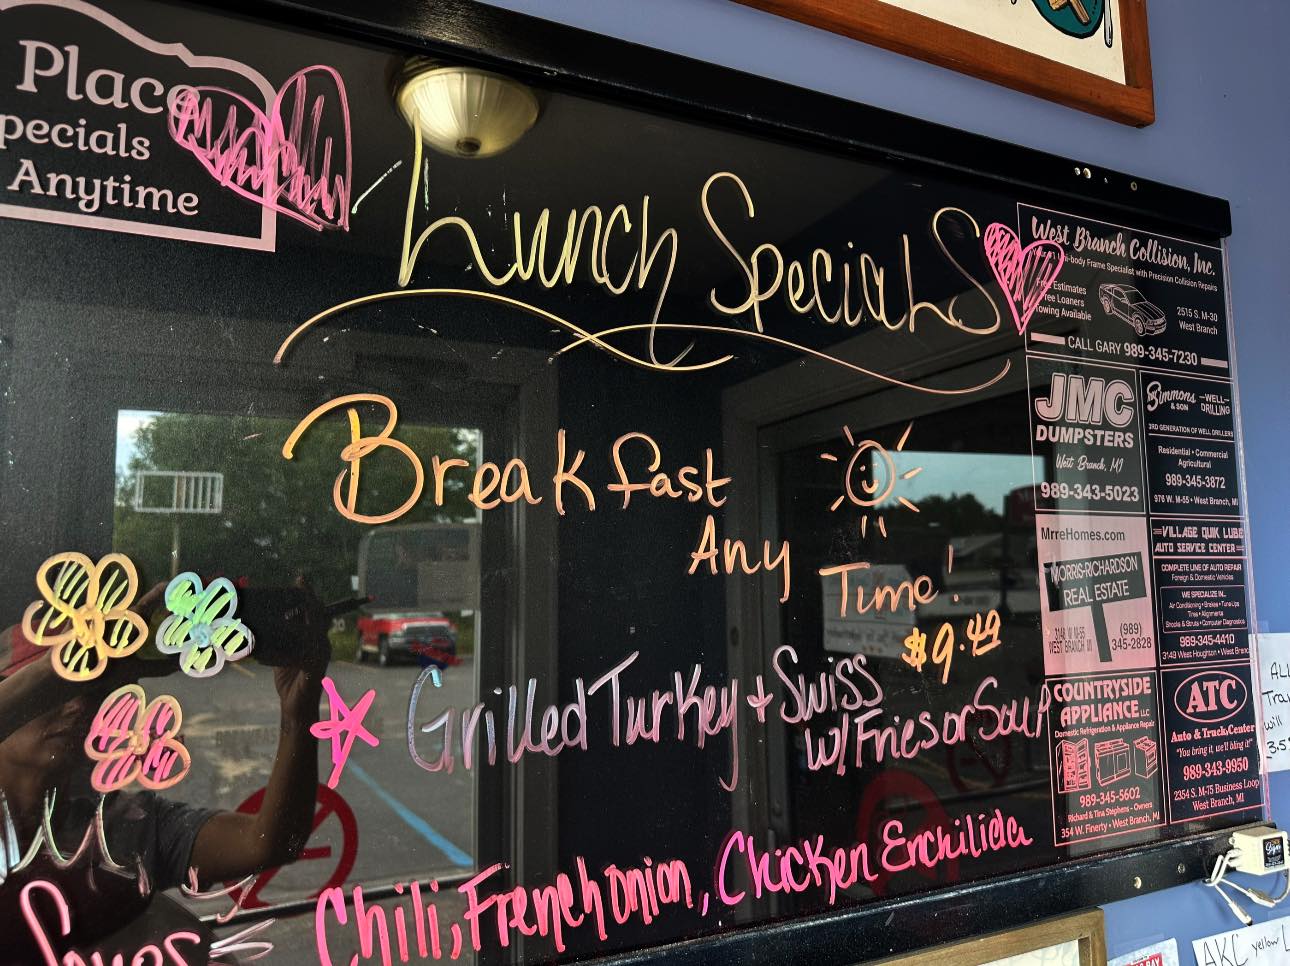 Place
pecials
Anytime
Lunch Specials
Breakfast
Any
Time!
$9.49
Grilled Turkey + Swiss
w/Fries or Soup
Chili, French onion, Chicken Enchilida
West Branch Collision, Inc.
Uni-body Frame Specialist with Precision Collision Repairs
Free Estimates
Free Loaners
Towing Available
2515 S. M-30
West Branch
CALL GARY 989-345-7230
JMC
DUMPSTERS
West Branch, MI
989-343-5023
Simmons
& SON
WELL
DRILLING
3RD GENERATION OF WELL DRILLERS
Residential • Commercial
Agricultural
989-345-3872
976 W. M-55 • West Branch, MI
MrreHomes.com
MORRIS-RICHARDSON
REAL ESTATE
WEST BRANCH MI
(989)
345-2828
VILLAGE QUIK LUBE
AUTO SERVICE CENTER
COMPLETE LINE OF AUTO REPAIR
Foreign & Domestic Vehicles
WE SPECIALIZE IN...
Air Conditioning • Brakes • Tune-Ups
Tires • Alignments
Shocks & Struts • Computer Diagnostics
989-345-4410
3149 West Houghton • West Branch
COUNTRYSIDE
APPLIANCE LLC
Domestic Refrigeration & Appliance Repair
989-345-5602
Richard & Tina Stephens - Owners
354 W. Finerty • West Branch, MI
ATC
Auto & Truck Center
"You bring it, we'll bling it!"
989-343-9950
2354 S. M-75 Business Loop
West Branch, MI
ALL
will
3.5
AKC yellow L